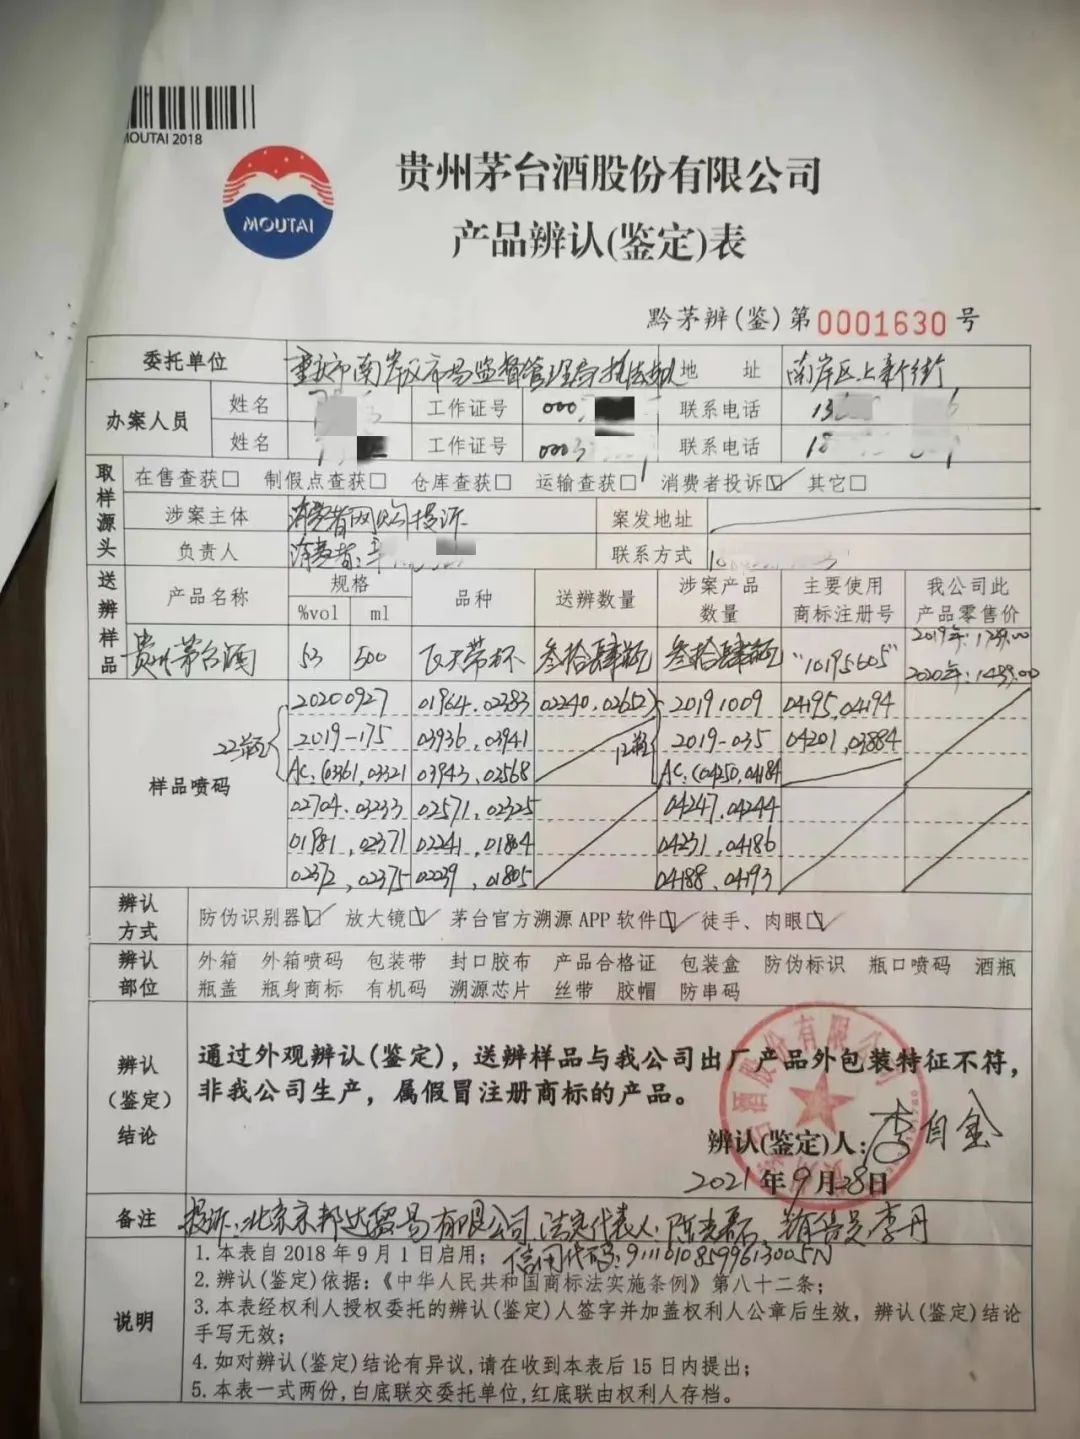 MOUTAI 2018
MOUTAI
贵州茅台酒股份有限公司
产品辨认(鉴定)表
黔茅辨(鉴)第0001630号
委托单位 重庆市南岸区市场监督管理局执法支队 地 址 南岸区上新街
办案人员 姓名 工作证号 000 联系电话
姓名 工作证号 000 联系电话
取样源头 在售查获□ 制假点查获□ 仓库查获□ 运输查获□ 消费者投诉☑ 其它□
涉案主体 消费者网购投诉 案发地址
负责人 消费者: 联系方式
送辨样品 产品名称 规格 %vol ml 品种 送辨数量 涉案产品数量 主要使用商标注册号 我公司此产品零售价
贵州茅台酒 53 500 飞天带杯 叁拾肆瓶 叁拾肆瓶 "10195605" 2019年:1299.00
2020年:1499.00
样品喷码 22瓶 20200927 01964.02383 02240.02652 12瓶 20191009 04195,04194
2019-175 03936,03941 2019-035 04201,03884
AC:(0361,03321 03943,02568 AC:(04250,04184
02704.03233 02571,02325 04247,04244
01981,02371 02241,01804 04231,04186
02372,02375 02039,01805 04188,04193
辨认方式 防伪识别器☑ 放大镜☑ 茅台官方溯源APP软件☑ 徒手、肉眼☑
辨认部位 外箱 外箱喷码 包装带 封口胶布 产品合格证 包装盒 防伪标识 瓶口喷码 酒瓶
瓶盖 瓶身商标 有机码 溯源芯片 丝带 胶帽 防串码
辨认(鉴定)结论 通过外观辨认(鉴定)，送辨样品与我公司出厂产品外包装特征不符，
非我公司生产，属假冒注册商标的产品。
辨认(鉴定)人:李自金
2021年9月28日
备注 投诉:北京京邦达贸易有限公司,法定代表人:陈 销售员李丹
信用代码:
说明 1.本表自2018年9月1日启用;
2.辨认(鉴定)依据:《中华人民共和国商标法实施条例》第八十二条;
3.本表经权利人授权委托的辨认(鉴定)人签字并加盖权利人公章后生效，辨认(鉴定)结论
手写无效;
4.如对辨认(鉴定)结论有异议,请在收到本表后15日内提出;
5.本表一式两份,白底联交委托单位,红底联由权利人存档。